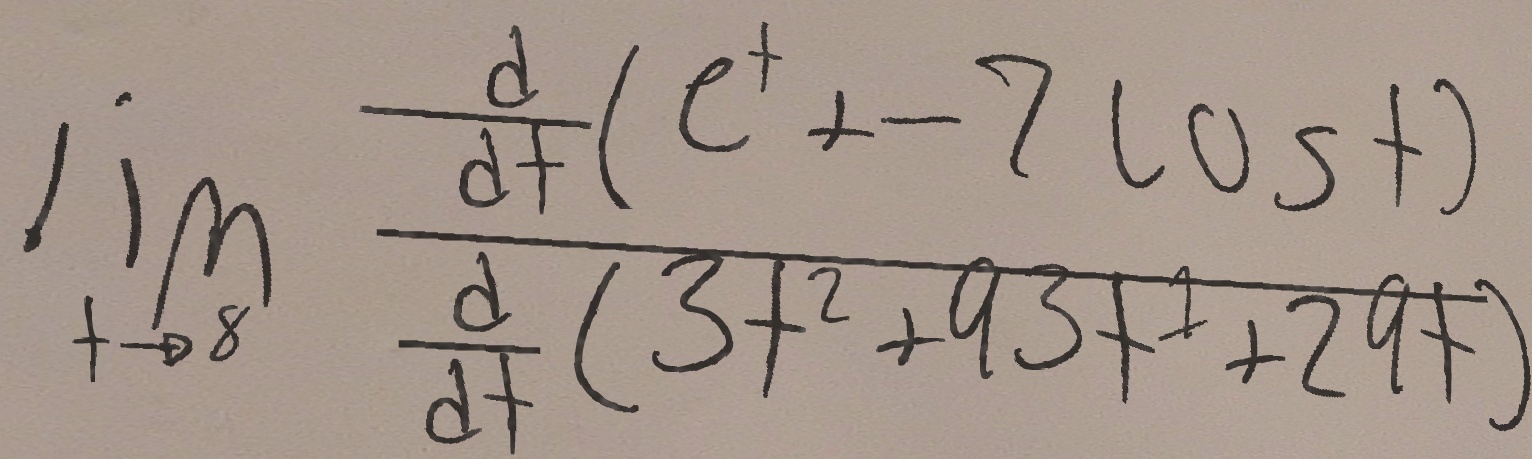 \lim_{t \to 8} \frac{\frac{d}{dt}(e^t + -7\cos t)}{\frac{d}{dt}(3t^2 + 93t^1 + 29t)}